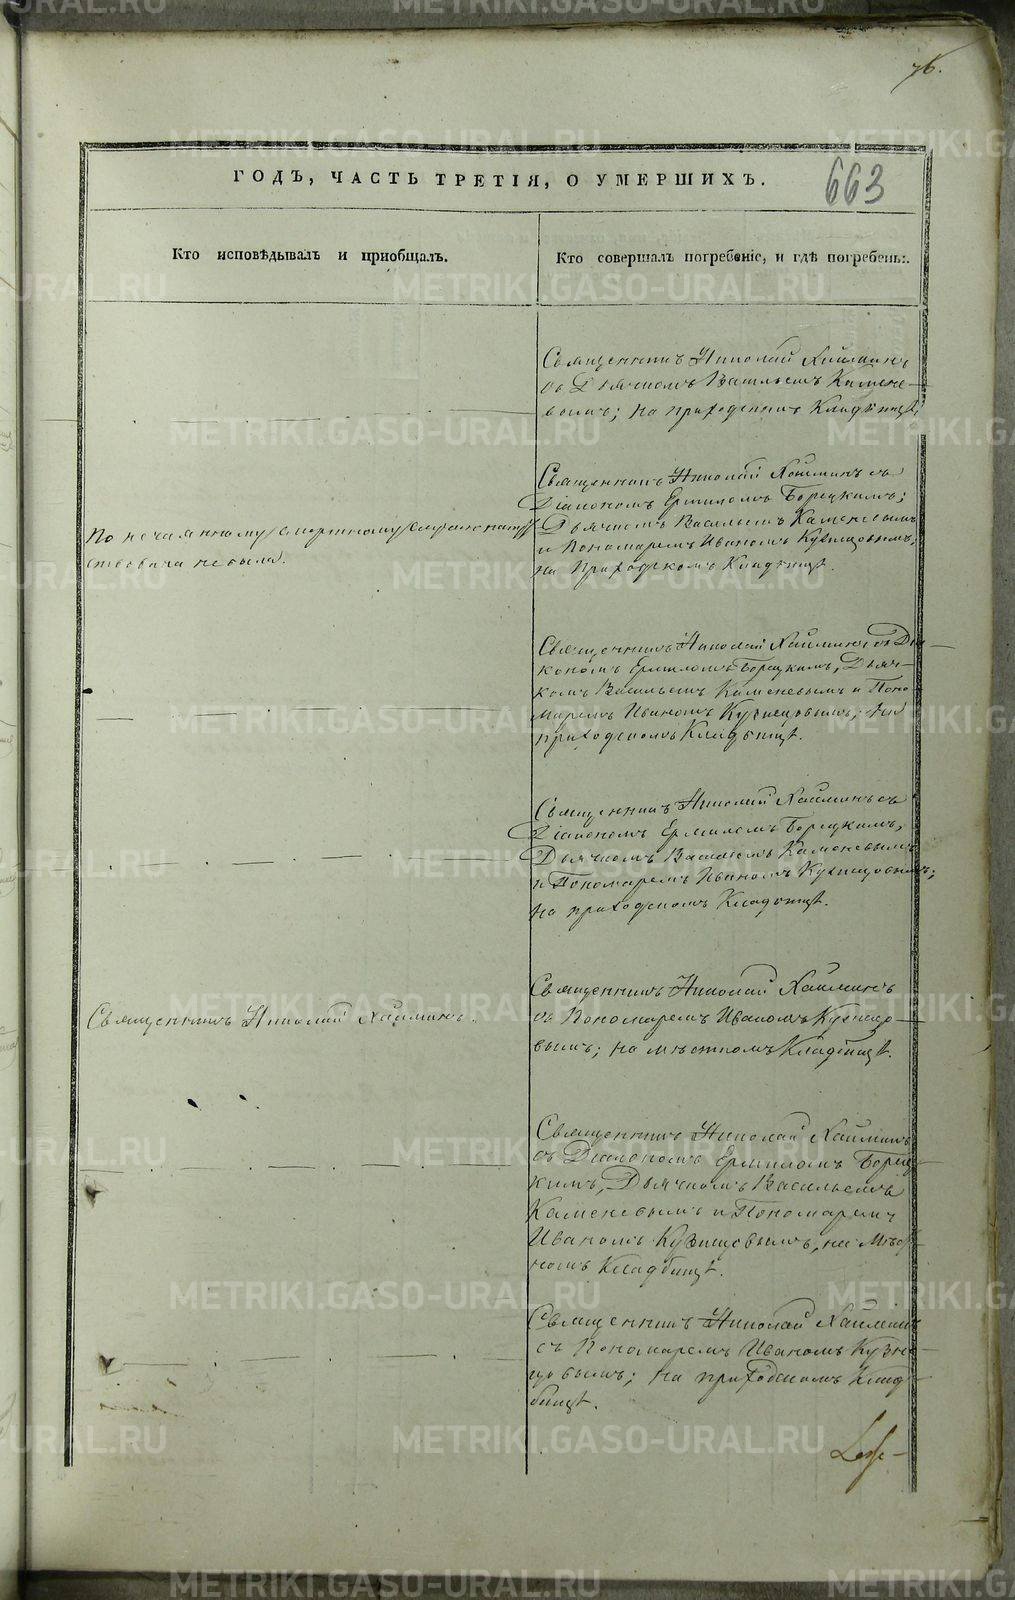 76.
663
ГОДЪ, ЧАСТЬ ТРЕТІЯ, О УМЕРШИХЪ.
Кто исповѣдывалъ и пріобщалъ.
Кто совершалъ погребеніе, и гдѣ погребены.
Священникъ Николай Хайминъ
съ Дьячкомъ Васильемъ Камене-
вымъ; на приходскомъ Кладбищѣ.
По нечаянному смертному случаю напут
ствована не была.
Священникъ Николай Хайминъ съ
Діакономъ Ермиломъ Борецкимъ;
Дьячкомъ Васильемъ Каменевымъ
и Пономаремъ Иваномъ Кузнецовымъ;
на Приходскомъ Кладбищѣ.
Священникъ Николай Хайминъ съ Діа-
кономъ Ермиломъ Борецкимъ, Дьяч-
комъ Васильемъ Каменевымъ и Поно-
маремъ Иваномъ Кузнецовымъ; на
приходскомъ Кладбищѣ.
Священникъ Николай Хайминъ съ
Діакономъ Ермиломъ Борецкимъ,
Дьячкомъ Васильемъ Каменевымъ
и Пономаремъ Иваномъ Кузнецовымъ;
на приходскомъ Кладбищѣ.
Священникъ Николай Хайминъ.
Священникъ Николай Хайминъ
съ Пономаремъ Иваномъ Кузнецо-
вымъ; на мѣстномъ Кладбищѣ.
Священникъ Николай Хайминъ
съ Діакономъ Ермиломъ Борец-
кимъ, Дьячкомъ Васильемъ
Каменевымъ и Пономаремъ
Иваномъ Кузнецовымъ, на
Кладбищѣ.
Священникъ Николай Хайминъ
съ Пономаремъ Иваномъ Кузне-
цовымъ; на приходскомъ Клад-
бищѣ.
METRIKI.GASO-URAL.RU